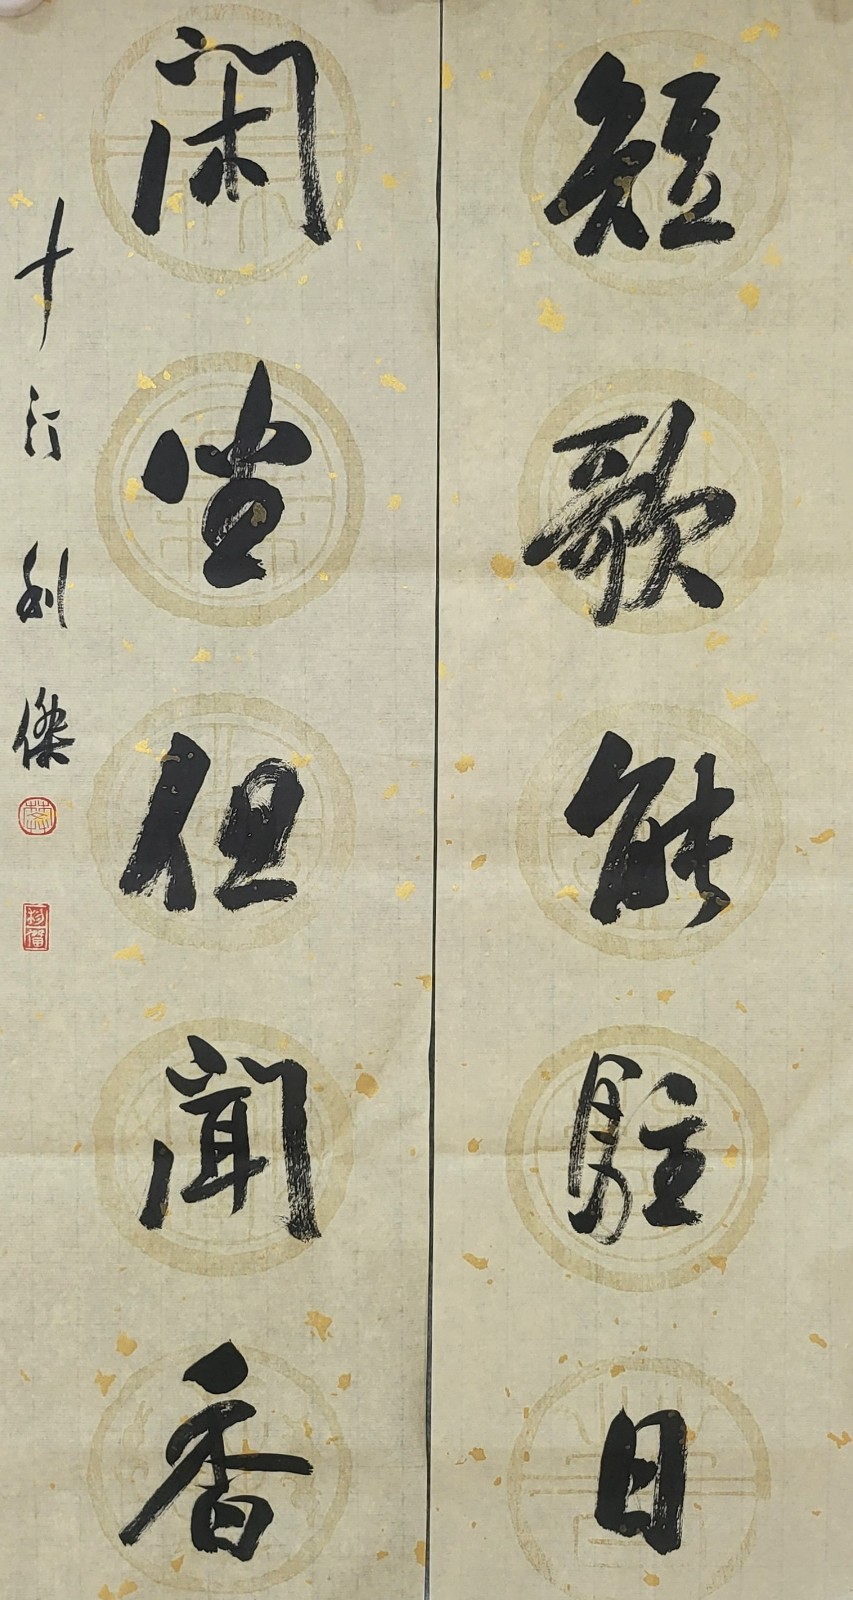 短歌能駐日
閑坐但聞香
十行利傑